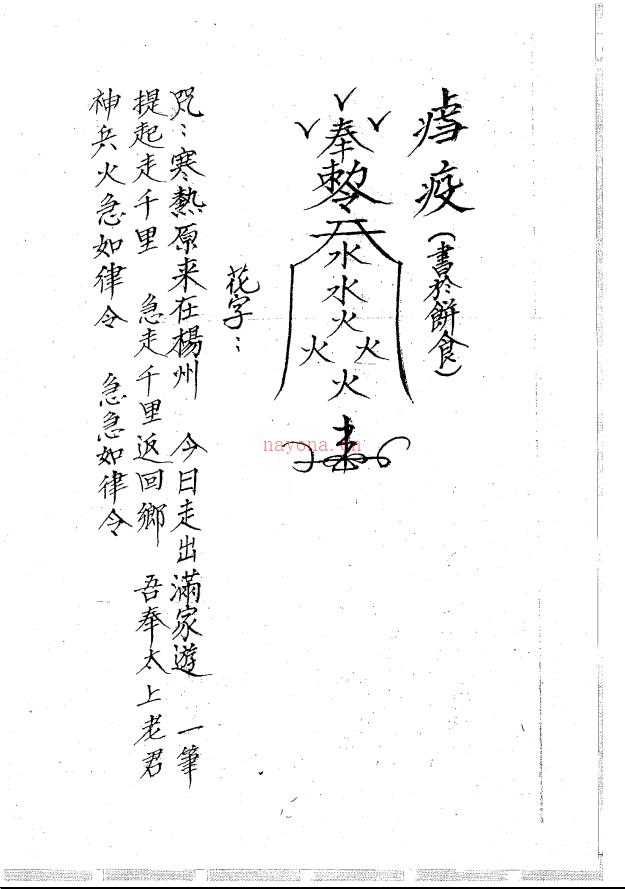 疫(書於餅食)
奉
勅令
水
水
火
火 火
火
花字:
咒:寒熱原来在楊州 今日走出滿家遊 一筆
提起走千里 急走千里返回鄉 吾奉太上老君
神兵火急如律令 急急如律令
nayona.cn